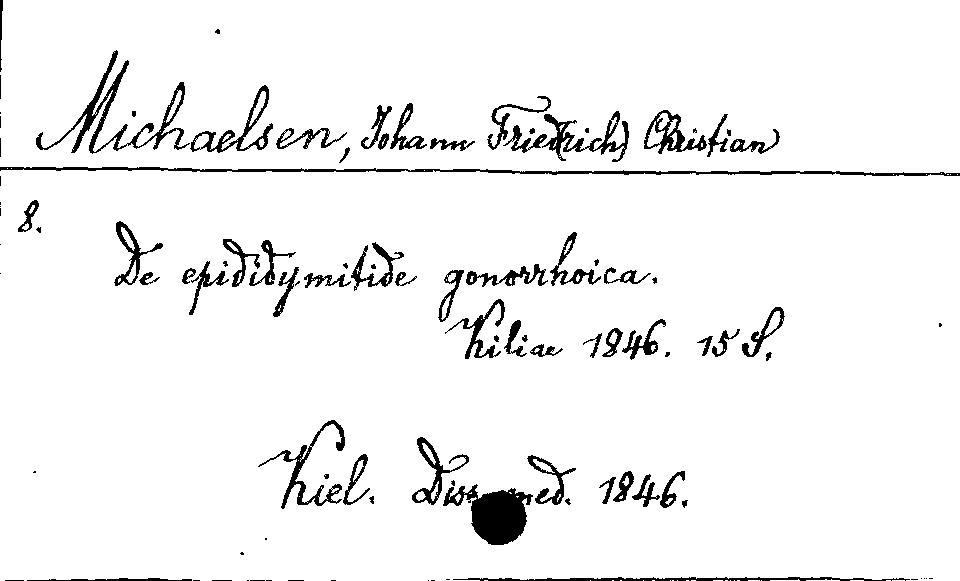 Michaelsen, Johann Fried(rich) Christian
8.
De epididymitide gonorrhoica.
Kiliae 1846. 15 S.
Kiel. Diss. med. 1846.